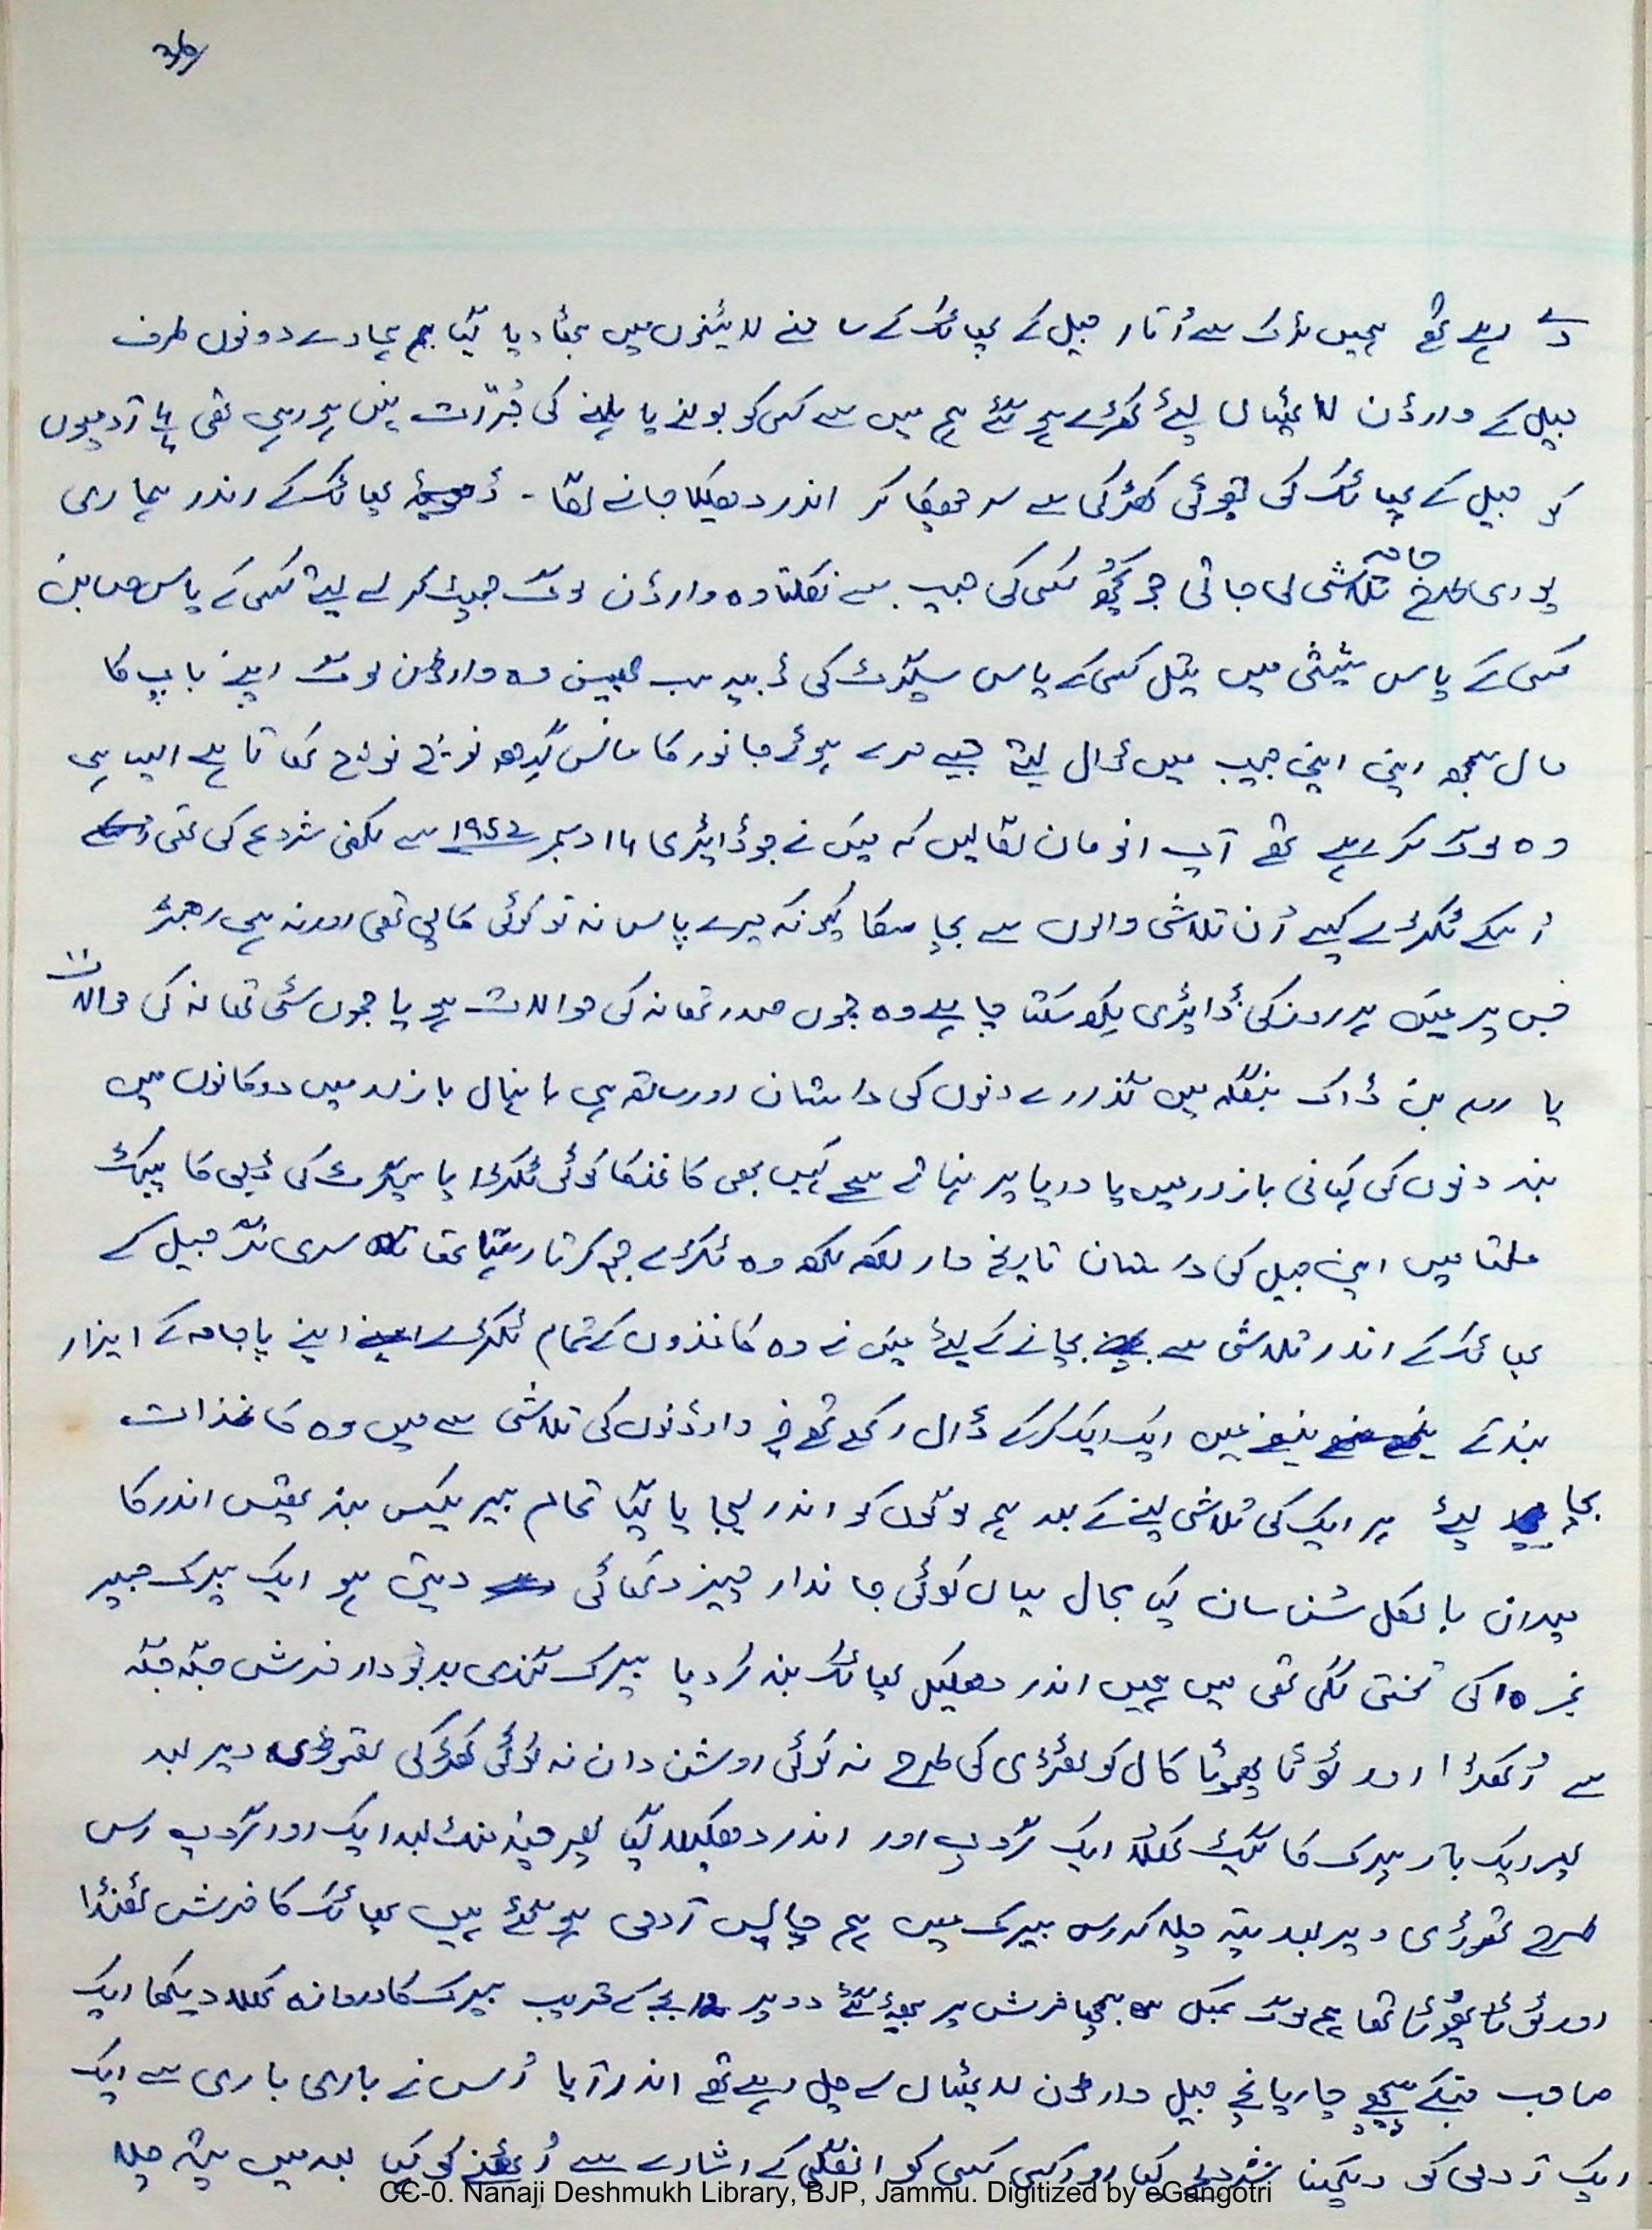 36
دے رہے تھے ہمیں ٹرک سے اُتار جیل کے پھاٹک کے سامنے لائینوں میں بٹھا دیا گیا ہمارے دونوں طرف
جیل کے وارڈن لاٹھیاں لیئے کھڑے ہو گئے ہم میں سے کسی کو بولنے یا ہلنے کی جُرّت نہیں ہو رہی تھی آدمیوں
کو جیل کے پھاٹک کی چھوٹی کھڑکی سے سر جھکا کر اندر دھکیلا جانے لگا - پھاٹک کے اندر ہماری
پوری طرح جامہ تلاشی لی جاتی جو کچھ کسی کی جیب سے نکلتا وہ وارڈن لوگ جھپٹ کر لے لیتے کسی کے پاس صابن
کسی کے پاس شیشی میں تیل کسی کے پاس سیگرٹ کی ڈبیہ سب چھین وہ وارڈن لوگ اپنے باپ کا
مال سمجھ اپنی اپنی جیب میں ڈال لیتے جیسے مرے ہوئے جانور کا مانس گِدھ نوچ نوچ کھاتا ہے ایسا ہی
وہ لوگ کر رہے تھے آپ انومان لگا لیں کہ میں نے جو ڈائیری ۱۴ دسمبر ۱۹۵۲ سے لکھنی شروع کی تھی
اُسکے ٹکڑے کیسے اُن تلاشی والوں سے بچا سکا کیونکہ میرے پاس نہ تو کوئی کاپی تھی اور نہ ہی رجسٹر
جس پر میں ہر روز کی ڈائیری لکھ سکتا چاہے وہ جموں صدر تھانہ کی حوالات ہو یا جموں سٹی تھانہ کی حوالات
یا رام بن ڈاک بنگلہ میں گذرے دنوں کی داستان اور ساتھ ہی بانہال بازار میں دوکانوں میں
بند دنوں کی کہانی بازار میں یا دریا پر نہاتے سمے کہیں بھی کاغذ کا کوئی ٹکڑا یا سیگرٹ کی ڈبی کا پیکٹ
ملتا میں اپنی جیل کی داستان تاریخ وار لکھ لکھ وہ ٹکڑے جمع کرتا رہتا تھا سری نگر جیل کے
پھاٹک کے اندر تلاشی سے بچانے کے لیئے میں نے وہ کاغذوں کے تمام ٹکڑے اپنے پاجامہ کے ازار
بند کے نیفے میں ایک ایک کر کے ڈال رکھے تھے وارڈنوں کی تلاشی سے میں وہ کاغذات
بچا لیئے ہر ایک کی تلاشی لینے کے بعد ہم لوگوں کو اندر لیجایا گیا تمام بیریکس بند تھیں اندر کا
میدان بالکل سنسان کیا مجال یہاں کوئی جاندار چیز دکھائی دیتی ہو ایک بیرک جس پر
نمبر ۱۵ کی تختی لگی تھی میں ہمیں اندر دھکیل پھاٹک بند کر دیا بیرک گندی بدبو دار فرش جگہ جگہ
سے اُکھڑا اور ٹوٹا پھوٹا کال کوٹھڑی کی طرح نہ کوئی روشن دان نہ کوئی کھڑکی تھوڑی دیر بعد
پھر ایک بار بیرک کا گیٹ کھلا ایک گروپ اور اندر دھکیلا گیا پھر چند منٹ بعد ایک اور گروپ اس
طرح تھوڑی دیر بعد پتہ چلا کہ اس بیرک میں ہم چالیس آدمی ہو گئے ہیں پھاٹک کا فرش ٹھنڈا
اور ٹوٹا پھوٹا تھا ہم لوگ کمبل بچھا فرش پر بیٹھ گئے دوپہر بجے کے قریب بیرک کا دروازہ کھلا دیکھا ایک
صاحب جنکے پیچھے چار پانچ جیل وارڈن لاٹھیاں لے چل رہے تھے اندر آیا اُس نے باری باری سے ایک
ایک آدمی کو دیکھنا شروع کیا اور کسی کسی کو انگلی کے اشارے سے اُٹھنے کو کہا بعد میں پتہ چلا
CC-0. Nanaji Deshmukh Library, BJP, Jammu. Digitized by eGangotri